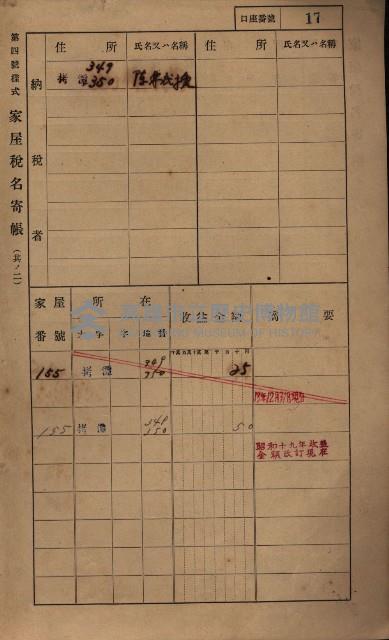 口座番號 17
第四號樣式 家屋稅名寄帳 (其ノ二)
住所 氏名又ハ名稱 住所 氏名又ハ名稱
納稅者
349
拷潭 350 陳
家屋番號 所在 摘要
大字 字 地番
155 拷潭 349 350 25
155 拷潭 349 350 50
昭和十九年改
金額改訂現在
高雄市立歷史博物館
MUSEUM OF HISTORY